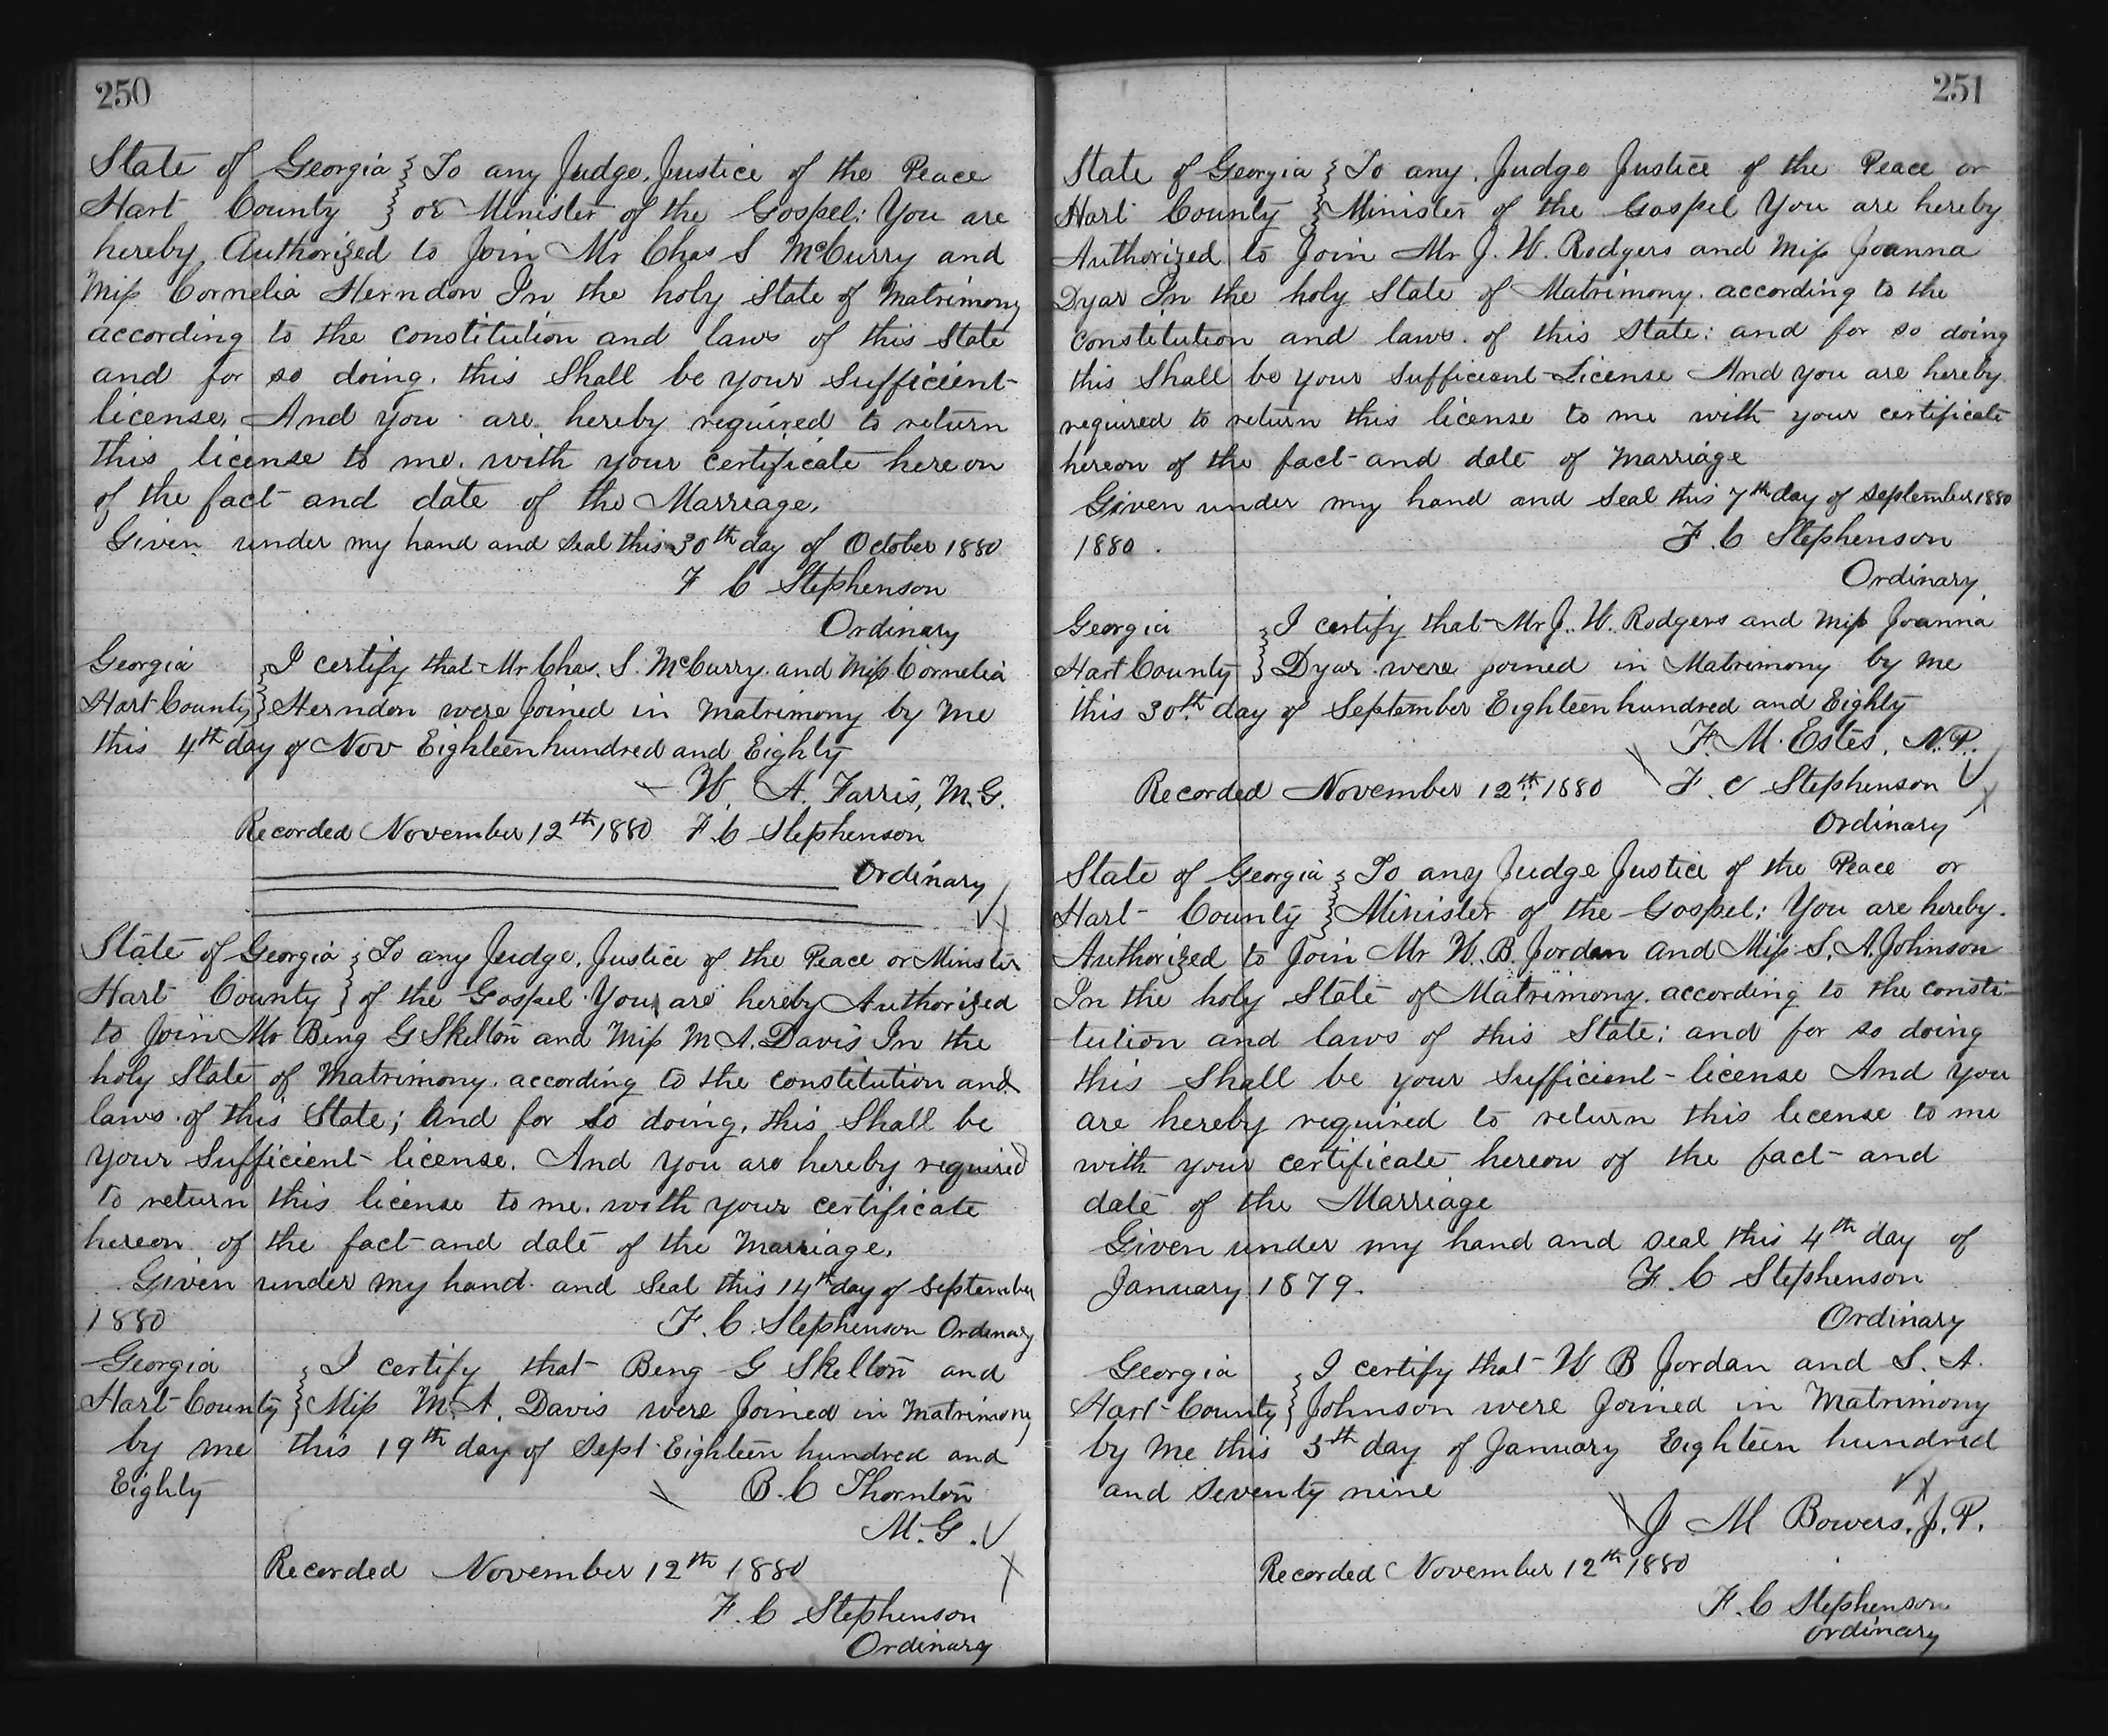 250
State of Georgia } To any Judge, Justice of the Peace
Hart County } or Minister of the Gospel: You are
hereby Authorized to Join Mr Chas S McCurry and
Miss Cornelia Herndon In the holy State of Matrimony
according to the constitution and laws of this State
and for so doing, this Shall be your Sufficient
license, And you are hereby required to return
this license to me with your certificate hereon
of the fact and date of the Marriage,
Given under my hand and seal this 30th day of October 1880
F C Stephenson
Ordinary
Georgia } I certify that Mr Chas. S. McCurry and Miss Cornelia
Hart County } Herndon were Joined in Matrimony by Me
this 4th day of Nov Eighteen hundred and Eighty
W. A. Farris, M.G.
Recorded November 12th 1880 F. C Stephenson
Ordinary
State of Georgia } To any Judge, Justice of the Peace or Minister
Hart County } of the Gospel You are hereby Authorized
to Join Mr Beng G Skelton and Miss M A. Davis In the
holy State of Matrimony according to the constitution and
laws of this State; And for So doing, this Shall be
your Sufficient license. And you are hereby required
to return this license to me. with your certificate
hereon of the fact and date of the Marriage.
Given under my hand and Seal this 14th day of September
1880 F. C. Stephenson Ordinary
Georgia } I certify that Beng G Skelton and
Hart County } Miss M. A. Davis were Joined in Matrimony
by me this 19th day of Sept Eighteen hundred and
Eighty B. C Thornton
M. G.
Recorded November 12th 1880
F. C Stephenson
Ordinary
251
State of Georgia } To any Judge Justice of the Peace or
Hart County } Minister of the Gospel You are hereby
Authorized to Join Mr J. W. Rodgers and Miss Joanna
Dyar In the holy State of Matrimony according to the
constitution and laws of this State: and for so doing
this Shall be your Sufficient License And you are hereby
required to return this license to me with your certificate
hereon of the fact and date of Marriage
Given under my hand and Seal this 7th day of September 1880
1880. F. C Stephenson
Ordinary
Georgia } I certify that Mr J. W. Rodgers and Miss Joanna
Hart County } Dyar were joined in Matrimony by Me
this 30th day of September Eighteen hundred and Eighty
F. M. Estes, N. P.
Recorded November 12th 1880 F. C Stephenson
Ordinary
State of Georgia } To any Judge Justice of the Peace or
Hart County } Minister of the Gospel: You are hereby.
Authorized to Join Mr W. B. Jordan and Miss S. A. Johnson
In the holy State of Matrimony according to the consti-
tution and laws of this State: and for so doing
this Shall be your Sufficient license And you
are hereby required to return this license to me
with your certificate hereon of the fact and
date of the Marriage
Given under my hand and seal this 4th day of
January 1879. F. C Stephenson
Ordinary
Georgia } I certify that W B Jordan and S. A.
Hart County } Johnson were Joined in Matrimony
by Me this 5th day of January Eighteen hundred
and Seventy nine
J M Bowers, J. P.
Recorded November 12th 1880
F. C Stephenson
Ordinary